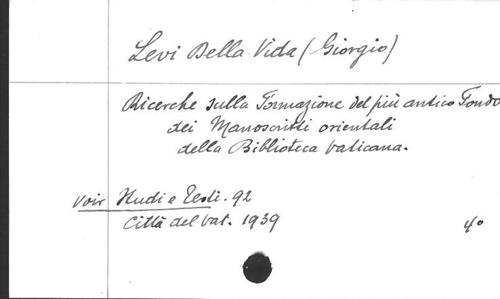 Levi Della Vida (Giorgio)
Ricerche sulla Formazione del più antico Fondo
dei Manoscritti orientali
della Biblioteca Vaticana.
voir Studi e Testi. 92
Città del Vat. 1939
4°